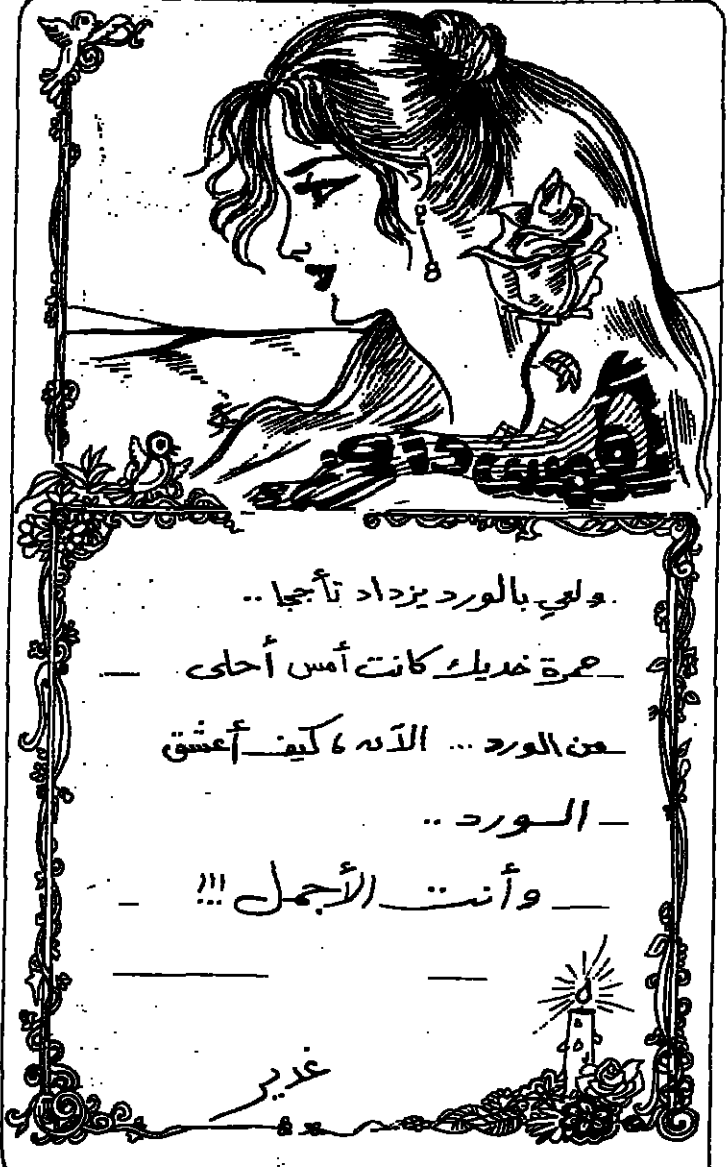 ولعي بالورد يزداد تأججا ..
حمرة خديك كانت أمس أحلى
من الورد ... الآن ، كيف أعشق
الورد ..
وأنت الأجمل !!!
غدير